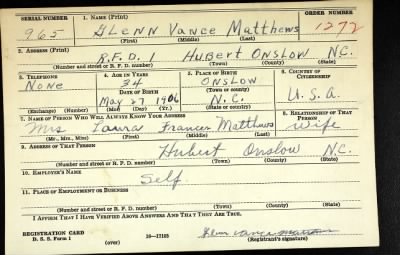 SERIAL NUMBER 1. NAME (Print) ORDER NUMBER
965 GLENN VANCE MATTHEWS 1272
(First) (Middle) (Last)
2. ADDRESS (Print)
R.F.D. HUBERT ONSLOW N.C.
(Number and street or R. F. D. number) (Town) (County) (State)
3. TELEPHONE 4. AGE IN YEARS 5. PLACE OF BIRTH 6. COUNTRY OF CITIZENSHIP
NONE 34 ONSLOW
DATE OF BIRTH (Town or county)
MAY 27 1906 N.C. U.S.A.
(Exchange) (Number) (Mo.) (Day) (Yr.) (State or country)
7. NAME OF PERSON WHO WILL ALWAYS KNOW YOUR ADDRESS 8. RELATIONSHIP OF THAT PERSON
Mrs Laura Frances Matthews wife
(Mr., Mrs., Miss) (First) (Middle) (Last)
9. ADDRESS OF THAT PERSON
Hubert Onslow N.C.
(Number and street or R. F. D. number) (Town) (County) (State)
10. EMPLOYER'S NAME
Self
11. PLACE OF EMPLOYMENT OR BUSINESS
(Number and street or R. F. D. number) (Town) (County) (State)
I AFFIRM THAT I HAVE VERIFIED ABOVE ANSWERS AND THAT THEY ARE TRUE.
REGISTRATION CARD
D. S. S. Form 1 (over) 16-17105 (Registrant's signature)